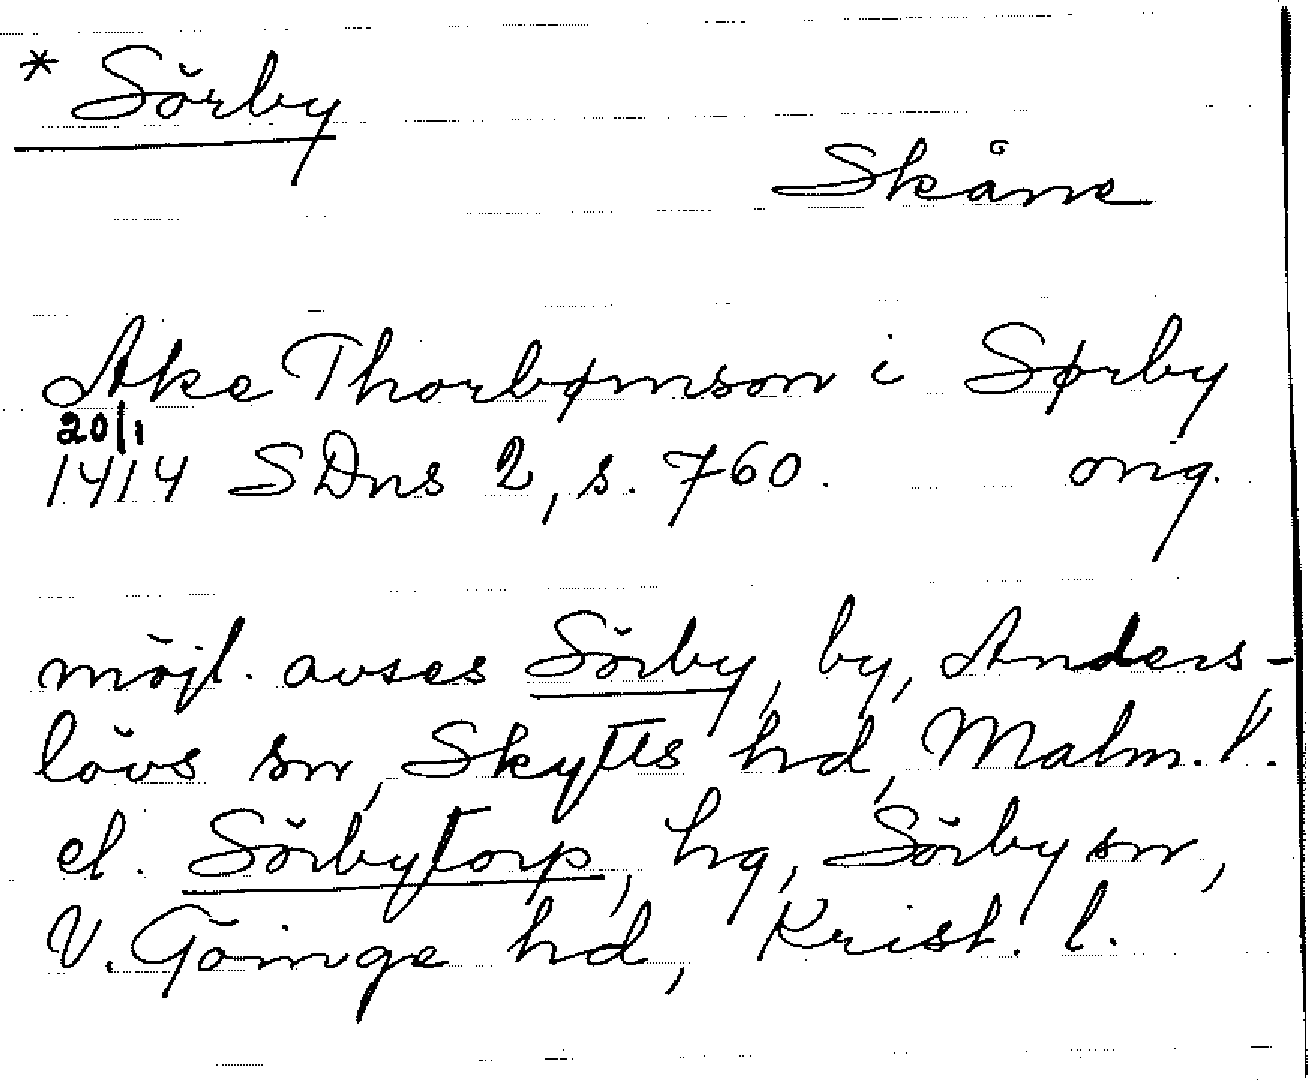 * Sörby
Skåne
Ake Thorbørnson i Sørby
20/1
1414 SDns 2, s. 760. orig.
möjl. avses Sörby, by, Anders-
lövs sn, Skytts hd, Malm. l.
el. Sörbytorp, hg, Sörby sn,
V. Göinge hd, Krist. l.